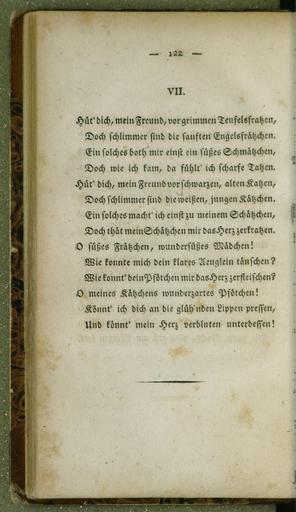 — 122 —
VII.
Hüt' dich, mein Freund, vor grimmen Teufelsfratzen,
Doch schlimmer sind die sanften Engelsfrätzchen.
Ein solches both mir einst ein süßes Schmätzchen,
Doch wie ich kam, da fühlt' ich scharfe Tatzen.
Hüt' dich, mein Freund vor schwarzen, alten Katzen,
Doch schlimmer sind die weißen, jungen Kätzchen.
Ein solches macht' ich einst zu meinem Schätzchen,
Doch thät mein Schätzchen mir das Herz zerkratzen.
O süßes Frätzchen, wundersüßes Mädchen!
Wie konnte mich dein klares Aeuglein täuschen?
Wie konnt' dein Pfötchen mir das Herz zerfleischen?
O meines Kätzchens wunderzartes Pfötchen!
Könnt' ich dich an die glüh'nden Lippen pressen,
Und könnt' mein Herz verbluten unterdessen!